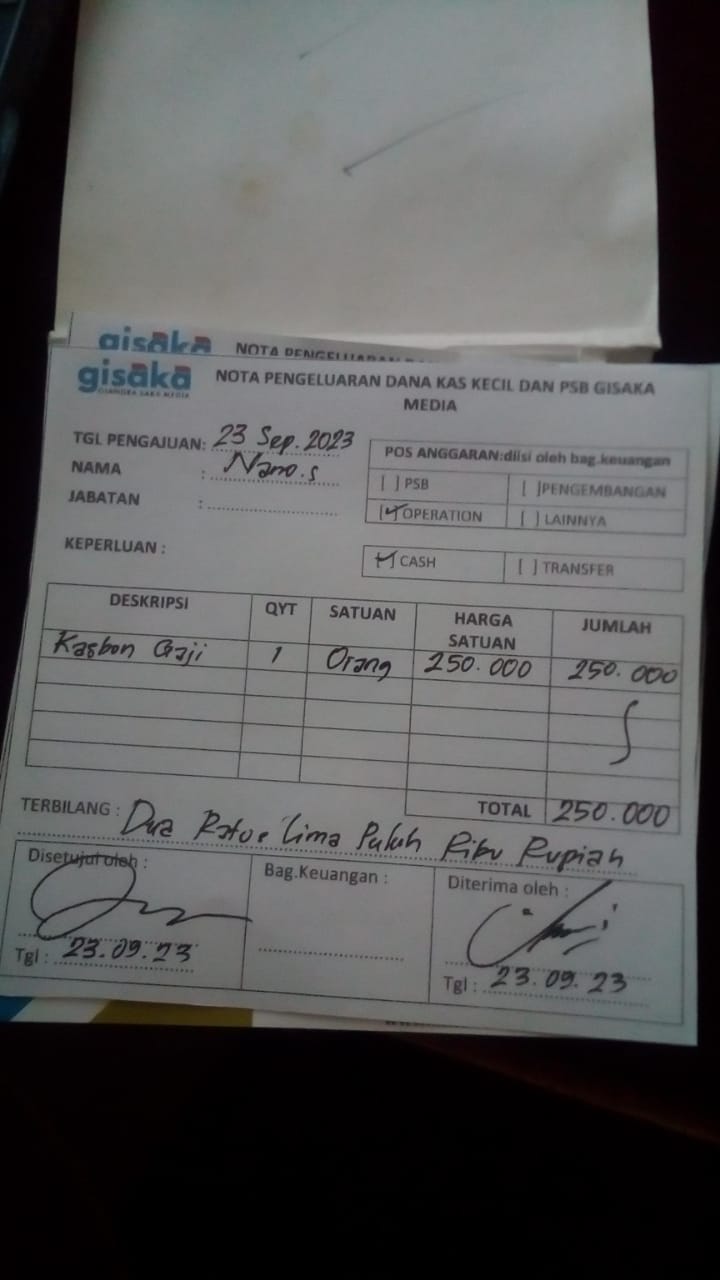 gisaka NOTA PENGELUARAN DANA
gisaka NOTA PENGELUARAN DANA KAS KECIL DAN PSB GISAKA
MEDIA
TGL PENGAJUAN: 23 Sep. 2023
NAMA : Nano.s
JABATAN :
KEPERLUAN :
POS ANGGARAN:diisi oleh bag.keuangan
[ ] PSB [ ]PENGEMBANGAN
[ ]OPERATION [ ] LAINNYA
[ ] CASH [ ] TRANSFER
DESKRIPSI QYT SATUAN HARGA SATUAN JUMLAH
Kasbon Gaji 1 Orang 250.000 250.000
TOTAL 250.000
TERBILANG : Dua Ratus Lima Puluh Ribu Rupiah
Disetujui oleh : Bag.Keuangan : Diterima oleh :
Tgl : 23.09.23 Tgl : 23.09.23